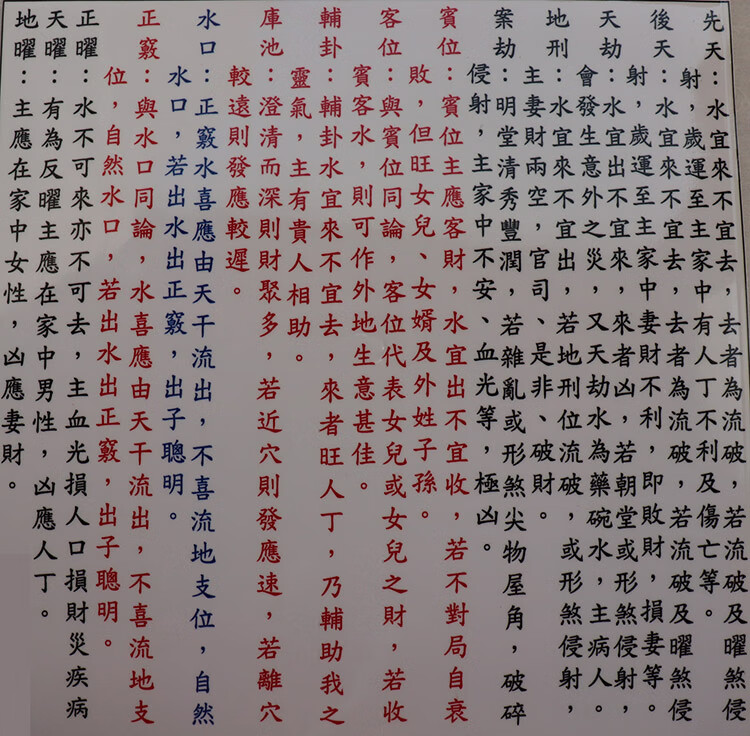 先天：水宜來不宜去，去者為流破，若流破及曜煞侵
射，歲運至主家中有人丁不利及傷亡等。
後天：水宜來不宜去，去者為流破，若流破及曜煞侵
射，歲運至主家中妻財不利，即敗財，損妻等。
天劫：水宜出不宜來，來者凶，若朝堂或形煞侵射，
會發生意外之災，又天劫水為藥碗水，主病人。
地刑：水宜來不宜出，若地刑位流破，或形煞侵射，
主妻財兩空，官司、是非、破財。
案劫：明堂清秀豐潤，若雜亂或形煞尖物屋角，破碎
侵射，主家中不安、血光等，極凶。
賓位：賓位主應客財，水宜出不宜收，若不對局自衰
敗，但旺女兒、女婿及外姓子孫。
客位：與賓位同論，客位代表女兒或女兒之財，若收
賓客水，則可作外地生意甚佳。
輔卦：輔卦水宜來不宜去，來者旺人丁，乃輔助我之
靈氣，主有貴人相助。
庫池：澄清而深則財聚多，若近穴則發應速，若離穴
較遠則發應較遲。
水口：正竅水喜應由天干流出，不喜流地支位，自然
水口，若出水出正竅，出子聰明。
正竅：與水口同論，水喜應由天干流出，不喜流地支
位，自然水口，若出水出正竅，出子聰明。
正曜：水不可來亦不可去，主血光損人口損財災疾病
天曜：有為反曜主應在家中男性，凶應人丁。
地曜：主應在家中女性，凶應妻財。